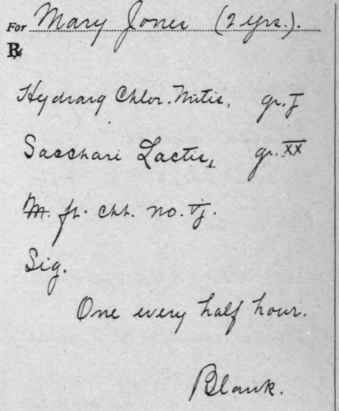 For Mary Jones (2 yrs.).
℞
Hydrarg Chlor. Mitis, gr. I
Sacchari Lactis, gr. XX
M. ft. cht. no. vj.
Sig.
One every half hour.
Blank.